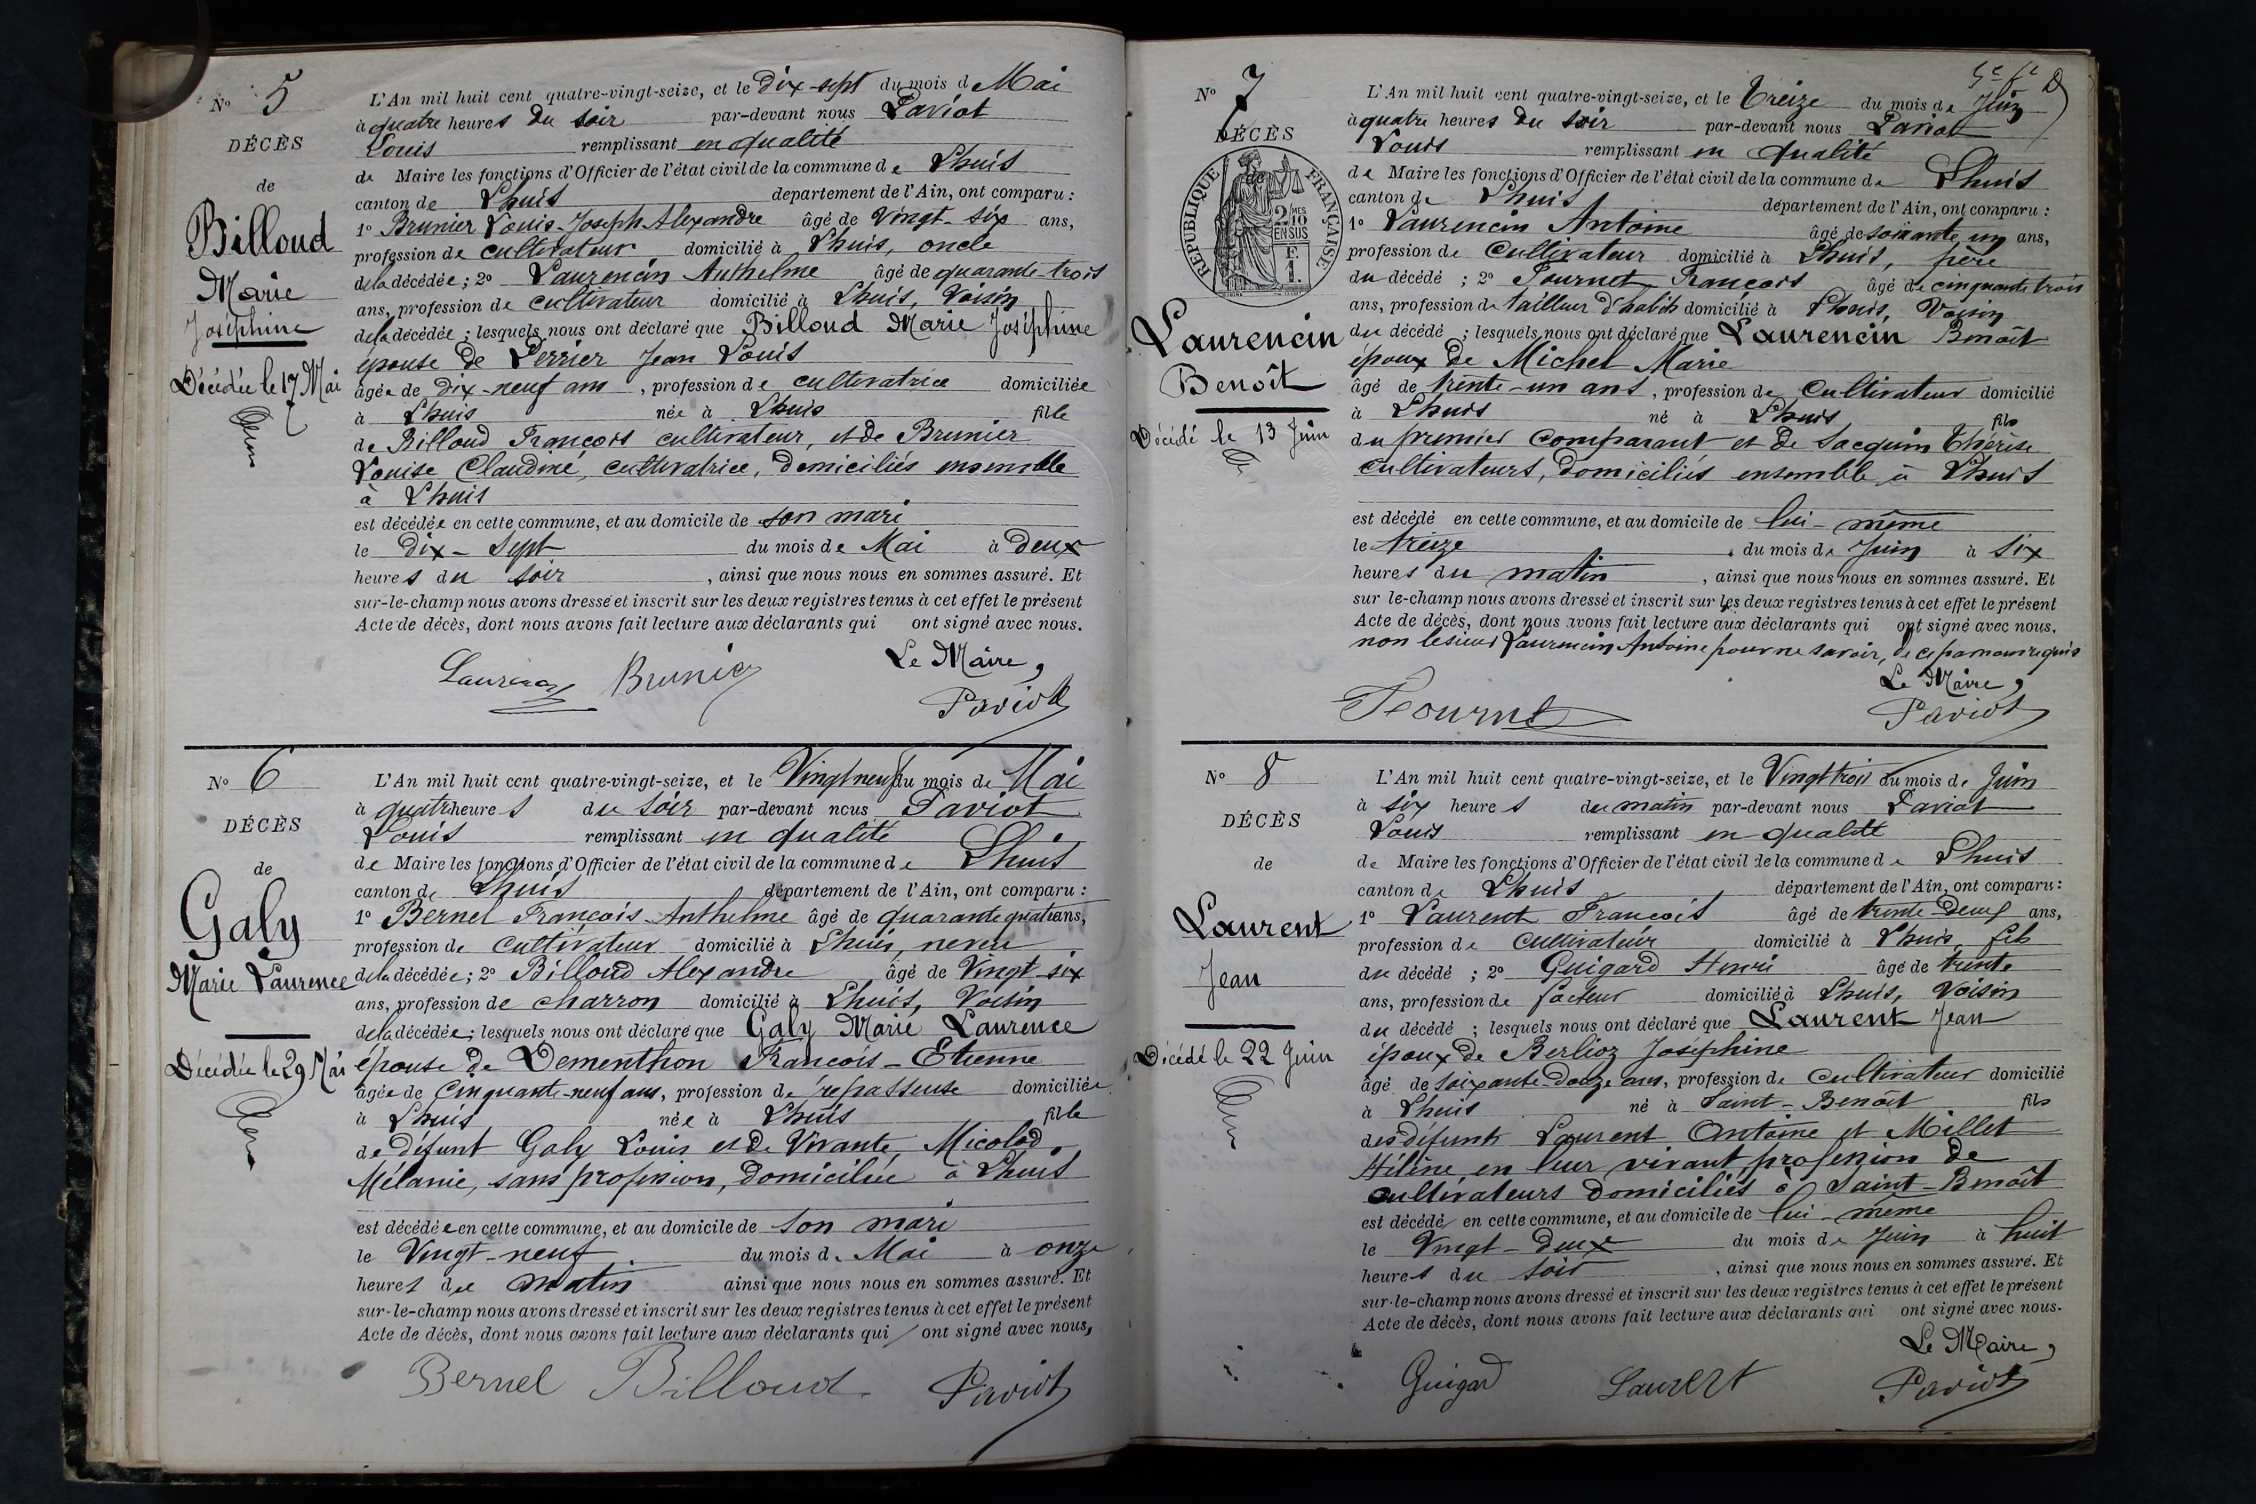 N° 5
DÉCÈS
de
Billoud
Marie
Joséphine
Décédée le 17 Mai
L'An mil huit cent quatre-vingt-seize, et le dix-sept du mois de Mai
à quatre heures du soir par-devant nous Paviot
Louis remplissant en qualité
de Maire les fonctions d'Officier de l'état civil de la commune de Lhuis
canton de Lhuis département de l'Ain, ont comparu :
1° Brunier Louis-Joseph Alexandre âgé de Vingt-six ans,
profession de cultivateur domicilié à Lhuis, oncle
de la décédée ; 2° Laurencin Anthelme âgé de quarante-trois
ans, profession de cultivateur domicilié à Lhuis, Voisin
de la décédée ; lesquels nous ont déclaré que Billoud Marie Joséphine
épouse de Perrier Jean Louis
âgée de dix-neuf ans, profession de cultivatrice domiciliée
à Lhuis née à Lhuis fille
de Billoud François cultivateur, et de Brunier
Louise Claudine, cultivatrice, domiciliés ensemble
à Lhuis
est décédée en cette commune, et au domicile de son mari
le dix-sept du mois de Mai à deux
heures du soir, ainsi que nous nous en sommes assuré. Et
sur-le-champ nous avons dressé et inscrit sur les deux registres tenus à cet effet le présent
Acte de décès, dont nous avons fait lecture aux déclarants qui ont signé avec nous.
Le Maire,
Laurencin Brunier Paviot
N° 6
DÉCÈS
de
Galy
Marie Laurence
Décédée le 29 Mai
L'An mil huit cent quatre-vingt-seize, et le Vingt neuf du mois de Mai
à quatre heures du soir par-devant nous Paviot
Louis remplissant en qualité
de Maire les fonctions d'Officier de l'état civil de la commune de Lhuis
canton de Lhuis département de l'Ain, ont comparu :
1° Bernel François-Anthelme âgé de quarante quatre ans,
profession de cultivateur domicilié à Lhuis, neveu
de la décédée ; 2° Billoud Alexandre âgé de Vingt-six
ans, profession de charron domicilié à Lhuis, Voisin
de la décédée ; lesquels nous ont déclaré que Galy Marie Laurence
épouse de Dementhon François-Etienne
âgée de Cinquante-neuf ans, profession de repasseuse domiciliée
à Lhuis née à Lhuis fille
de défunt Galy Louis et de Vivante, Micolod
Mélanie, sans profession, domiciliée à Lhuis
est décédée en cette commune, et au domicile de son mari
le Vingt-neuf du mois de Mai à onze
heures du matin ainsi que nous nous en sommes assuré. Et
sur-le-champ nous avons dressé et inscrit sur les deux registres tenus à cet effet le présent
Acte de décès, dont nous avons fait lecture aux déclarants qui ont signé avec nous,
Bernel Billoud Paviot
N° 7
DÉCÈS
RÉPUBLIQUE FRANÇAISE
2/10MES
EN SUS
F.
1.
Laurencin
Benoît
Décédé le 13 Juin
L'An mil huit cent quatre-vingt-seize, et le treize du mois de Juin
à quatre heures du soir par-devant nous Paviot
Louis remplissant en qualité
de Maire les fonctions d'Officier de l'état civil de la commune de Lhuis
canton de Lhuis département de l'Ain, ont comparu :
1° Laurencin Antoine âgé de soixante un ans,
profession de Cultivateur domicilié à Lhuis, père
du décédé ; 2° Tournet François âgé de cinquante trois
ans, profession de tailleur d'habits domicilié à Lhuis, Voisin
du décédé ; lesquels nous ont déclaré que Laurencin Benoît
époux de Michel Marie
âgé de trente-un ans, profession de Cultivateur domicilié
à Lhuis né à Lhuis fils
du premier Comparant et de Jacquin Thérèse
cultivateurs, domiciliés ensemble à Lhuis
est décédé en cette commune, et au domicile de lui-même
le treize du mois de Juin à six
heures du matin, ainsi que nous nous en sommes assuré. Et
sur le-champ nous avons dressé et inscrit sur les deux registres tenus à cet effet le présent
Acte de décès, dont nous avons fait lecture aux déclarants qui ont signé avec nous,
non le sieur Laurencin Antoine pour ne savoir, de ce par nous requis
Le Maire,
Tournet Paviot
N° 8
DÉCÈS
de
Laurent
Jean
Décédé le 22 Juin
L'An mil huit cent quatre-vingt-seize, et le Vingt trois du mois de Juin
à six heures du matin par-devant nous Paviot
Louis remplissant en qualité
de Maire les fonctions d'Officier de l'état civil de la commune de Lhuis
canton de Lhuis département de l'Ain, ont comparu :
1° Laurent François âgé de trente-deux ans,
profession de cultivateur domicilié à Lhuis, fils
du décédé ; 2° Guigard Henri âgé de trente
ans, profession de facteur domicilié à Lhuis, Voisin
du décédé ; lesquels nous ont déclaré que Laurent Jean
époux de Berlioz Joséphine
âgé de soixante-douze ans, profession de Cultivateur domicilié
à Lhuis né à Saint-Benoît fils
des défunts Laurent Antoine et Millet
Hélène en leur vivant profession de
cultivateurs domiciliés à Saint-Benoît
est décédé en cette commune, et au domicile de lui-même
le Vingt-deux du mois de Juin à huit
heures du soir, ainsi que nous nous en sommes assuré. Et
sur-le-champ nous avons dressé et inscrit sur les deux registres tenus à cet effet le présent
Acte de décès, dont nous avons fait lecture aux déclarants qui ont signé avec nous.
Le Maire,
Guigard Laurent Paviot